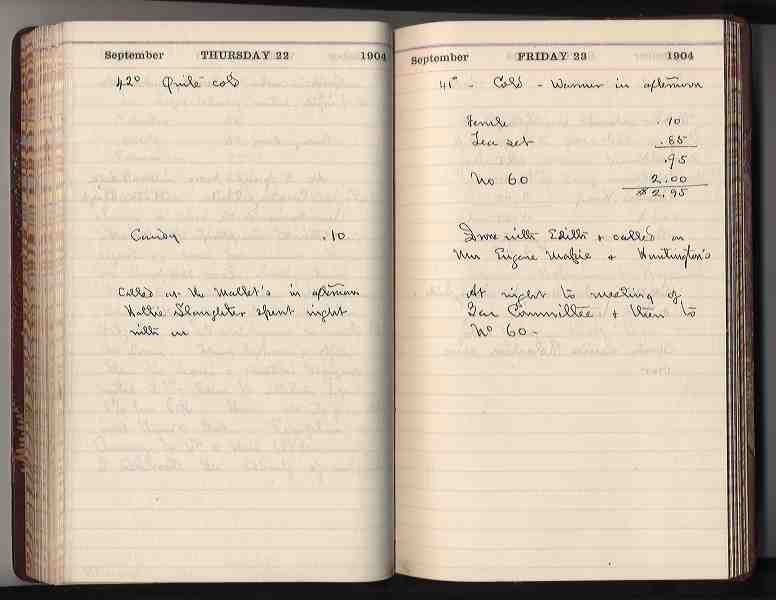 September THURSDAY 22 1904
42° Quite cold
Candy .10
Called at the Mallet's in afternoon
Hallie Slaughter spent night
with us
September FRIDAY 23 1904
41° - Cold - Warmer in afternoon
.10
Tea set .85
.95
No 60 2.00
$2.95
Drove with Edith + called on
Mrs Eugene + Huntington's
At night to meeting of
Committee + then to
No 60 -